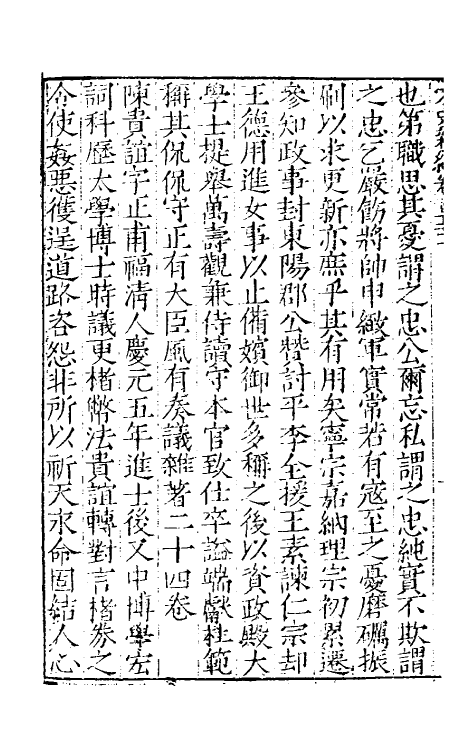 也第職思其憂謂之忠公爾忘私謂之忠純實不欺謂
之忠乞嚴飭將帥申儆軍實常若有寇至之憂磨礪振
刷以求更新亦庶乎其有用矣寧宗嘉納理宗初累遷
參知政事封東陽郡公贊討平李全援王素諫仁宗却
王德用進女事以止備嬪御世多稱之後以資政殿大
學士提舉萬壽觀兼侍讀守本官致仕卒謚端獻桂範
稱其侃侃守正有大臣風有奏議雜著二十四卷
陳貴誼字正甫福清人慶元五年進士後又中博學宏
詞科歷太學博士時議更楮幣法貴誼轉對言楮券之
令使姦惡獲逞道路咨怨非所以祈天永命固結人心